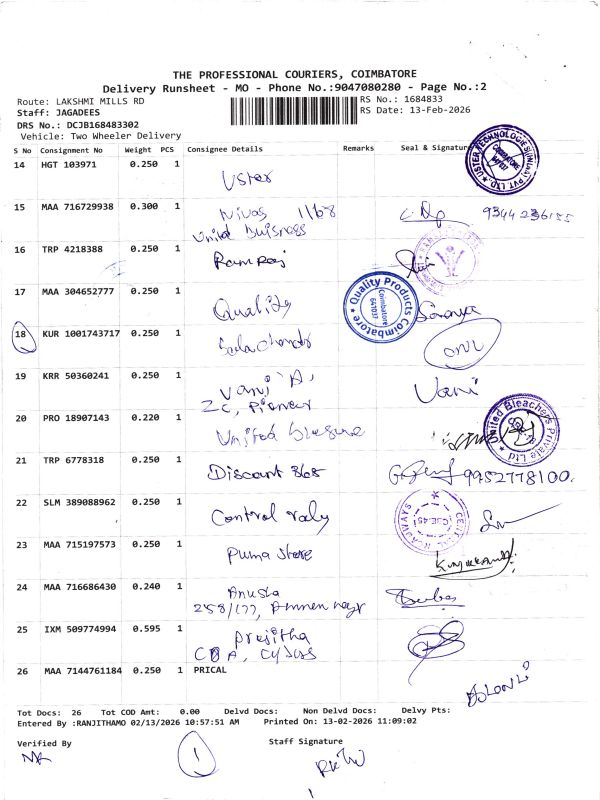 THE PROFESSIONAL COURIERS, COIMBATORE
Delivery Runsheet - MO - Phone No.:9047080280 - Page No.:2
Route: LAKSHMI MILLS RD
RS No.: 1684833
Staff: JAGADEES
RS Date: 13-Feb-2026
DRS No.: DCJB168483302
Vehicle: Two Wheeler Delivery
S No Consignment No Weight PCS Consignee Details Remarks Seal & Signature
14 HGT 103971 0.250 1 Uster
15 MAA 716729938 0.300 1 Nivas 1168 9344 236155
United Buisness
16 TRP 4218388 0.250 1 Ramraj
17 MAA 304652777 0.250 1 Quality Quality Products Coimbatore Coimbatore 641037 Saranya
18 KUR 1001743717 0.250 1
19 KRR 50360241 0.250 1 Vani A, Vani
ZC, Pioneer
20 PRO 18907143 0.220 1 United Bleachers Private Ltd
21 TRP 6778318 0.250 1 Discount 365 9952778100.
22 SLM 389088962 0.250 1 Control
23 MAA 715197573 0.250 1 Puma Store
24 MAA 716686430 0.240 1 Anusha
258/177,
25 IXM 509774994 0.595 1 Prejitha
26 MAA 7144761184 0.250 1 PRICAL
Tot Docs: 26 Tot COD Amt: 0.00 Delvd Docs: Non Delvd Docs: Delvy Pts:
Entered By :RANJITHAMO 02/13/2026 10:57:51 AM Printed On: 13-02-2026 11:09:02
Verified By Staff Signature
1